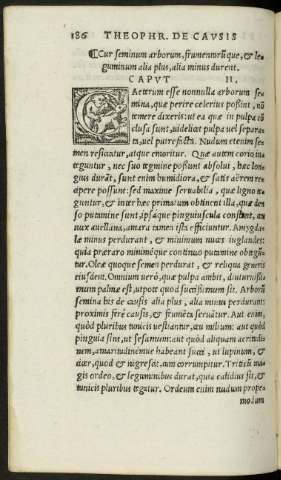 186 THEOPHR. DE CAVSIS
¶Cur seminum arborum, frumentorũ que, & le
guminum alia plus, alia minus durent.
CAPVT II.
CAeterum esse nonnulla arborum se
mina, quæ perire celerius possint, cũ
temere dixeris: ut ea quæ in pulpa cõ
clusa sunt, uidelicet pulpa uel separa
ta, uel putrefacta. Nudum etenim se
men resiccatur, atque emoritur. Quæ autem corio in
teguntur, nec suo tegmine possunt absolui, hæc lon
gius durãt, sunt enim humidiora, & satis aërem re
cipere possunt: sed maxime seruabilia, quæ ligno te
guntur, & inter hæc primatum obtinent illa, quæ den
so putamine sunt, ipsaque pinguiuscula constant, au
nux auellana, amara tamen ista efficiuntur. Amygda
læ minus perdurant, & minimum nuces iuglandes:
quia præraro minimeque continuo putamine obtegun
tur. Oleæ quoque semen perdurat, & reliqua generis
eiusdem. Omnium uerò, quæ pulpa ambit, diuturnissi
mum palmæ est, utpote quod siccissimum sit. Arborũ
semina his de causis alia plus, alia minus perdurant:
proximis ferè causis, & frumẽta seruãtur. Aut enim,
quòd pluribus tunicis uestiantur, au milium: aut quòd
pinguia sint, ut sesamum: aut quòd aliquam acritudi
nem, amaritudinemue habeant succi, ut lupinum, &
cicer, quod & nigrescit, non corrumpitur. Triticũ ma
gis ordeo, & leguminibus durat, quia calidius sit, &
tunicis pluribus tegitur. Ordeum enim nudum prope
modum